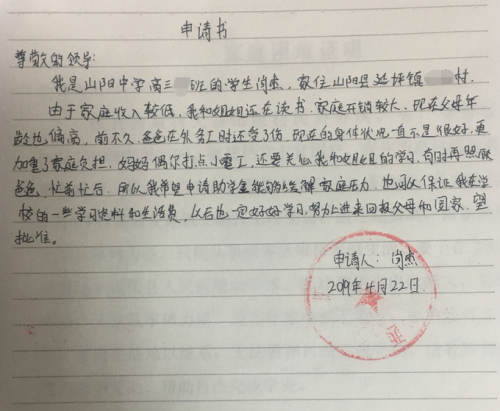 申请书
尊敬的领导:
我是山阳中学高三 班的学生闵杰，家住山阳县延坪镇 村。
由于家庭收入较低，我和姐姐还在读书，家庭开销较大，现在父母年
龄也偏高，前不久，爸爸在外务工时还受了伤，现在的身体状况一直不是很好，更
加重了家庭负担，妈妈偶尔打点小零工，还要关心我和姐姐的学习，有时再照顾
爸爸，忙前忙后，所以我希望申请助学金能够缓解家庭压力，也可以保证我在学
校的一些学习资料和生活费，以后也一定好好学习，努力上进来回报父母和国家，望
批准。
申请人：闵杰
2019年4月22日